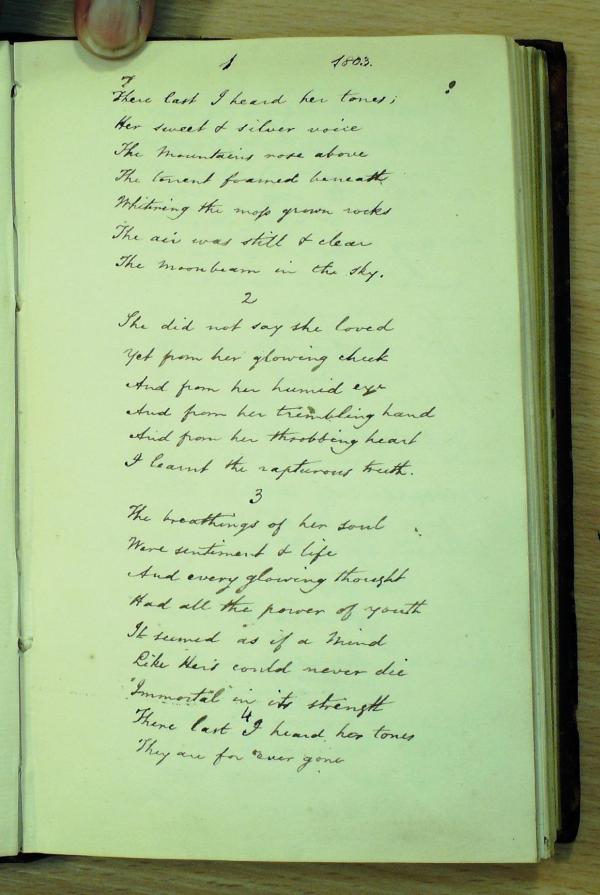 1 1803.
There last I heard her tones;
Her sweet & silver voice
The Mountains rose above
The torrent foamed beneath
Whitning the moss grown rocks
The air was still & clear
The Moonbeam in the sky.
2
She did not say she loved
Yet from her glowing cheek
And from her humid eye
And from her trembling hand
And from her throbbing heart
I learnt the rapturous truth.
3
The breathings of her soul
Were sentiment & life
And every glowing thought
Had all the power of youth
It seemed as if a Mind
Like Her's could never die
"Immortal" in its strength
4
There last I heard her tones
They are for ever gone